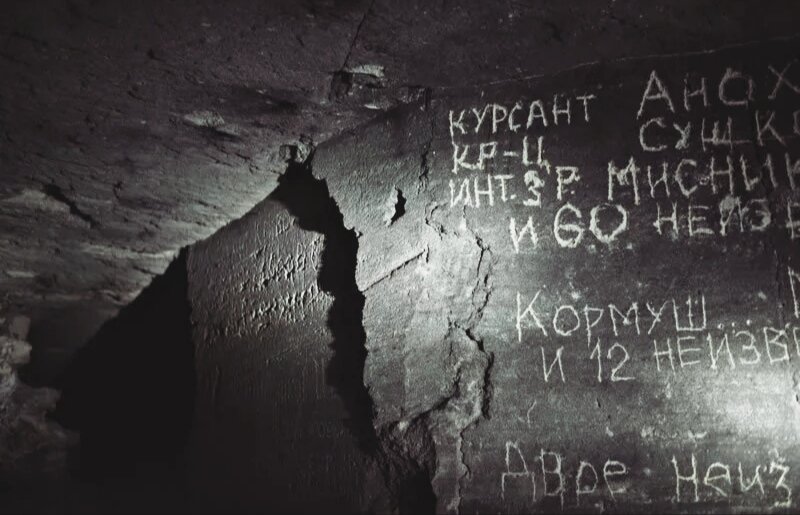 КУРСАНТ АНОХ
КР-Ц СУЩКО
ИНТ.3Р. МИСНИК
И 60 НЕИЗВ
КОРМУШ...
И 12 НЕИЗВ
ДВОЕ НЕИЗ